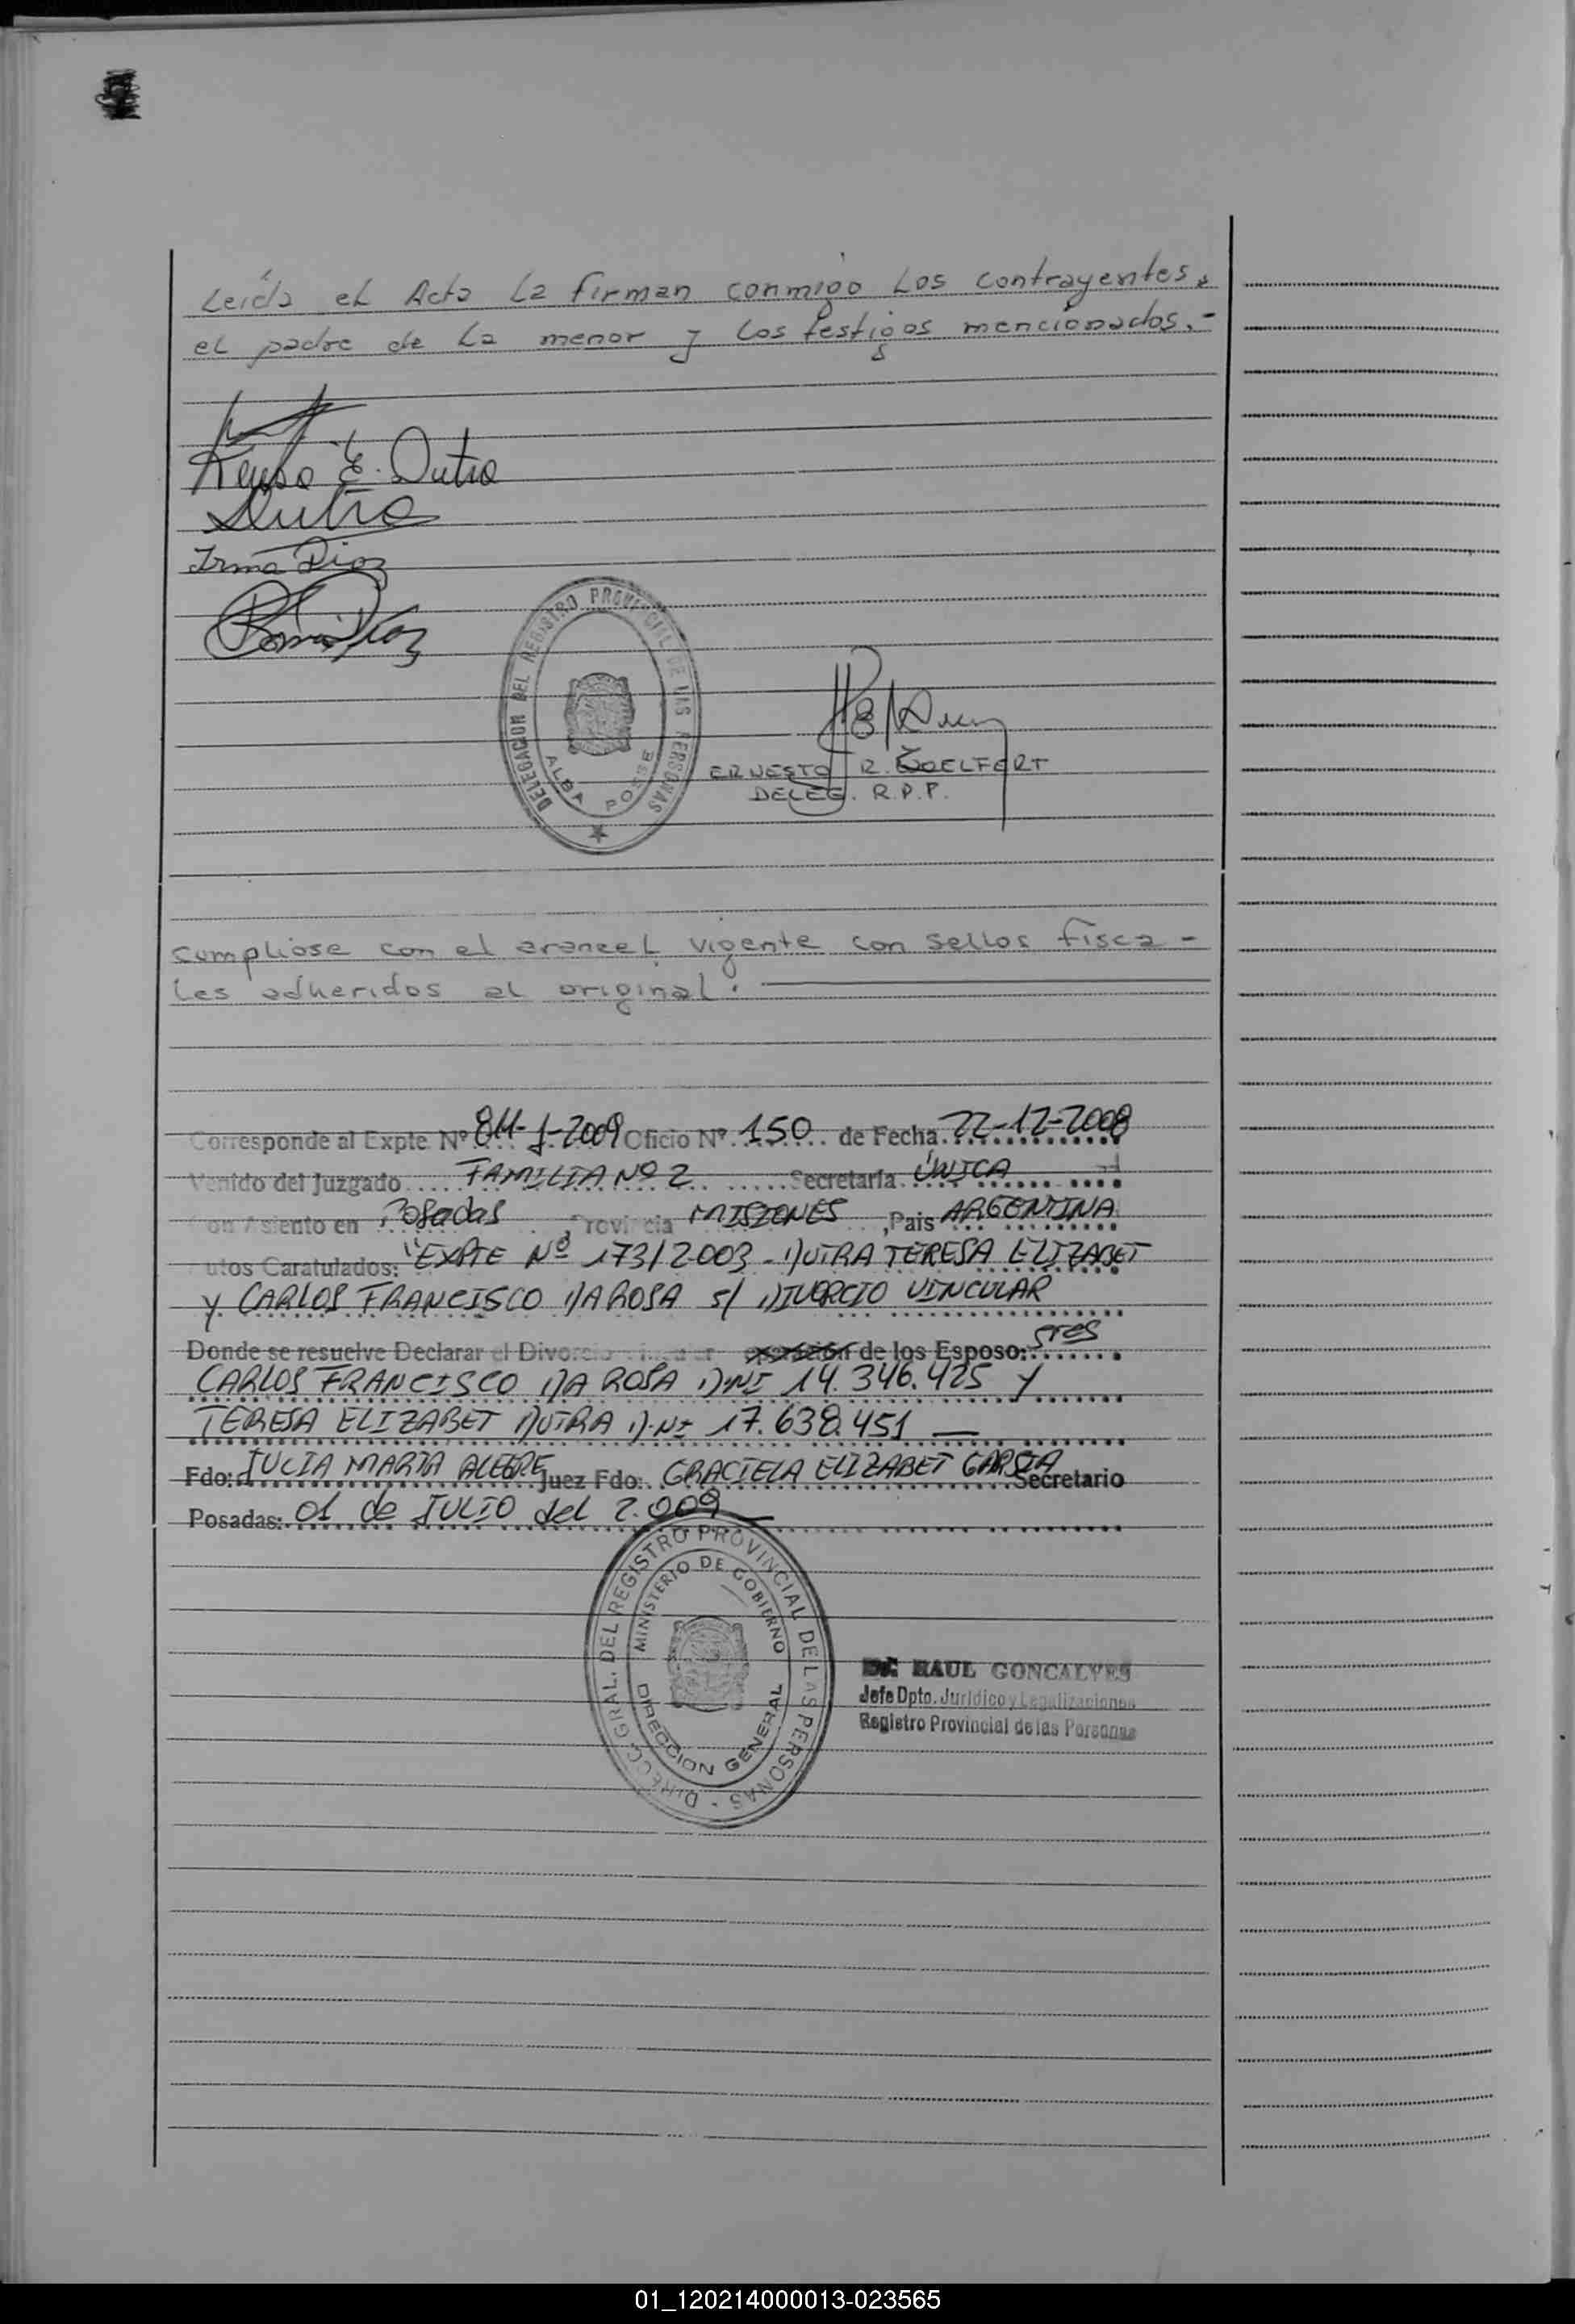 Leída el Acta la firman conmigo los contrayentes,
el padre de la menor y los testigos mencionados.-
E. Dutra
Dutra
Irma Diaz
DELEGACION DEL REGISTRO PROVINCIAL DE LAS PERSONAS
ALBA POSSE
ERNESTO R. 
DELEG. R.P.P.
Cumpliose con el arancel vigente con sellos fisca-
les adheridos al original.
Corresponde al Expte Nº 811-J-2009 Oficio Nº 150 de Fecha 22-12-2008
Venido del Juzgado FAMILIA Nº 2 Secretaria ÚNICA
Con Asiento en Posadas, Provincia MISIONES, Pais ARGENTINA
Autos Caratulados: "EXPTE Nº 173/2003 - DUTRA TERESA ELIZABET
y CARLOS FRANCISCO DA ROSA s/ DIVORCIO VINCULAR
Donde se resuelve Declarar el Divorcio de los Esposo: sres
CARLOS FRANCISCO DA ROSA DNI 14.346.425 y
TERESA ELIZABET DUTRA D.NI 17.638.451
Fdo: JULIA MARTA ALEGRE Juez Fdo: GRACIELA ELIZABET GARCIA Secretario
Posadas: 01 de JULIO del 2.009
DIRECC. GRAL. DEL REGISTRO PROVINCIAL DE LAS PERSONAS -
MINISTERIO DE GOBIERNO
DIRECCION GENERAL
Dr. RAUL GONCALVES
Jefe Dpto. Jurídico y Legalizaciones
Registro Provincial de las Personas
01_120214000013-023565